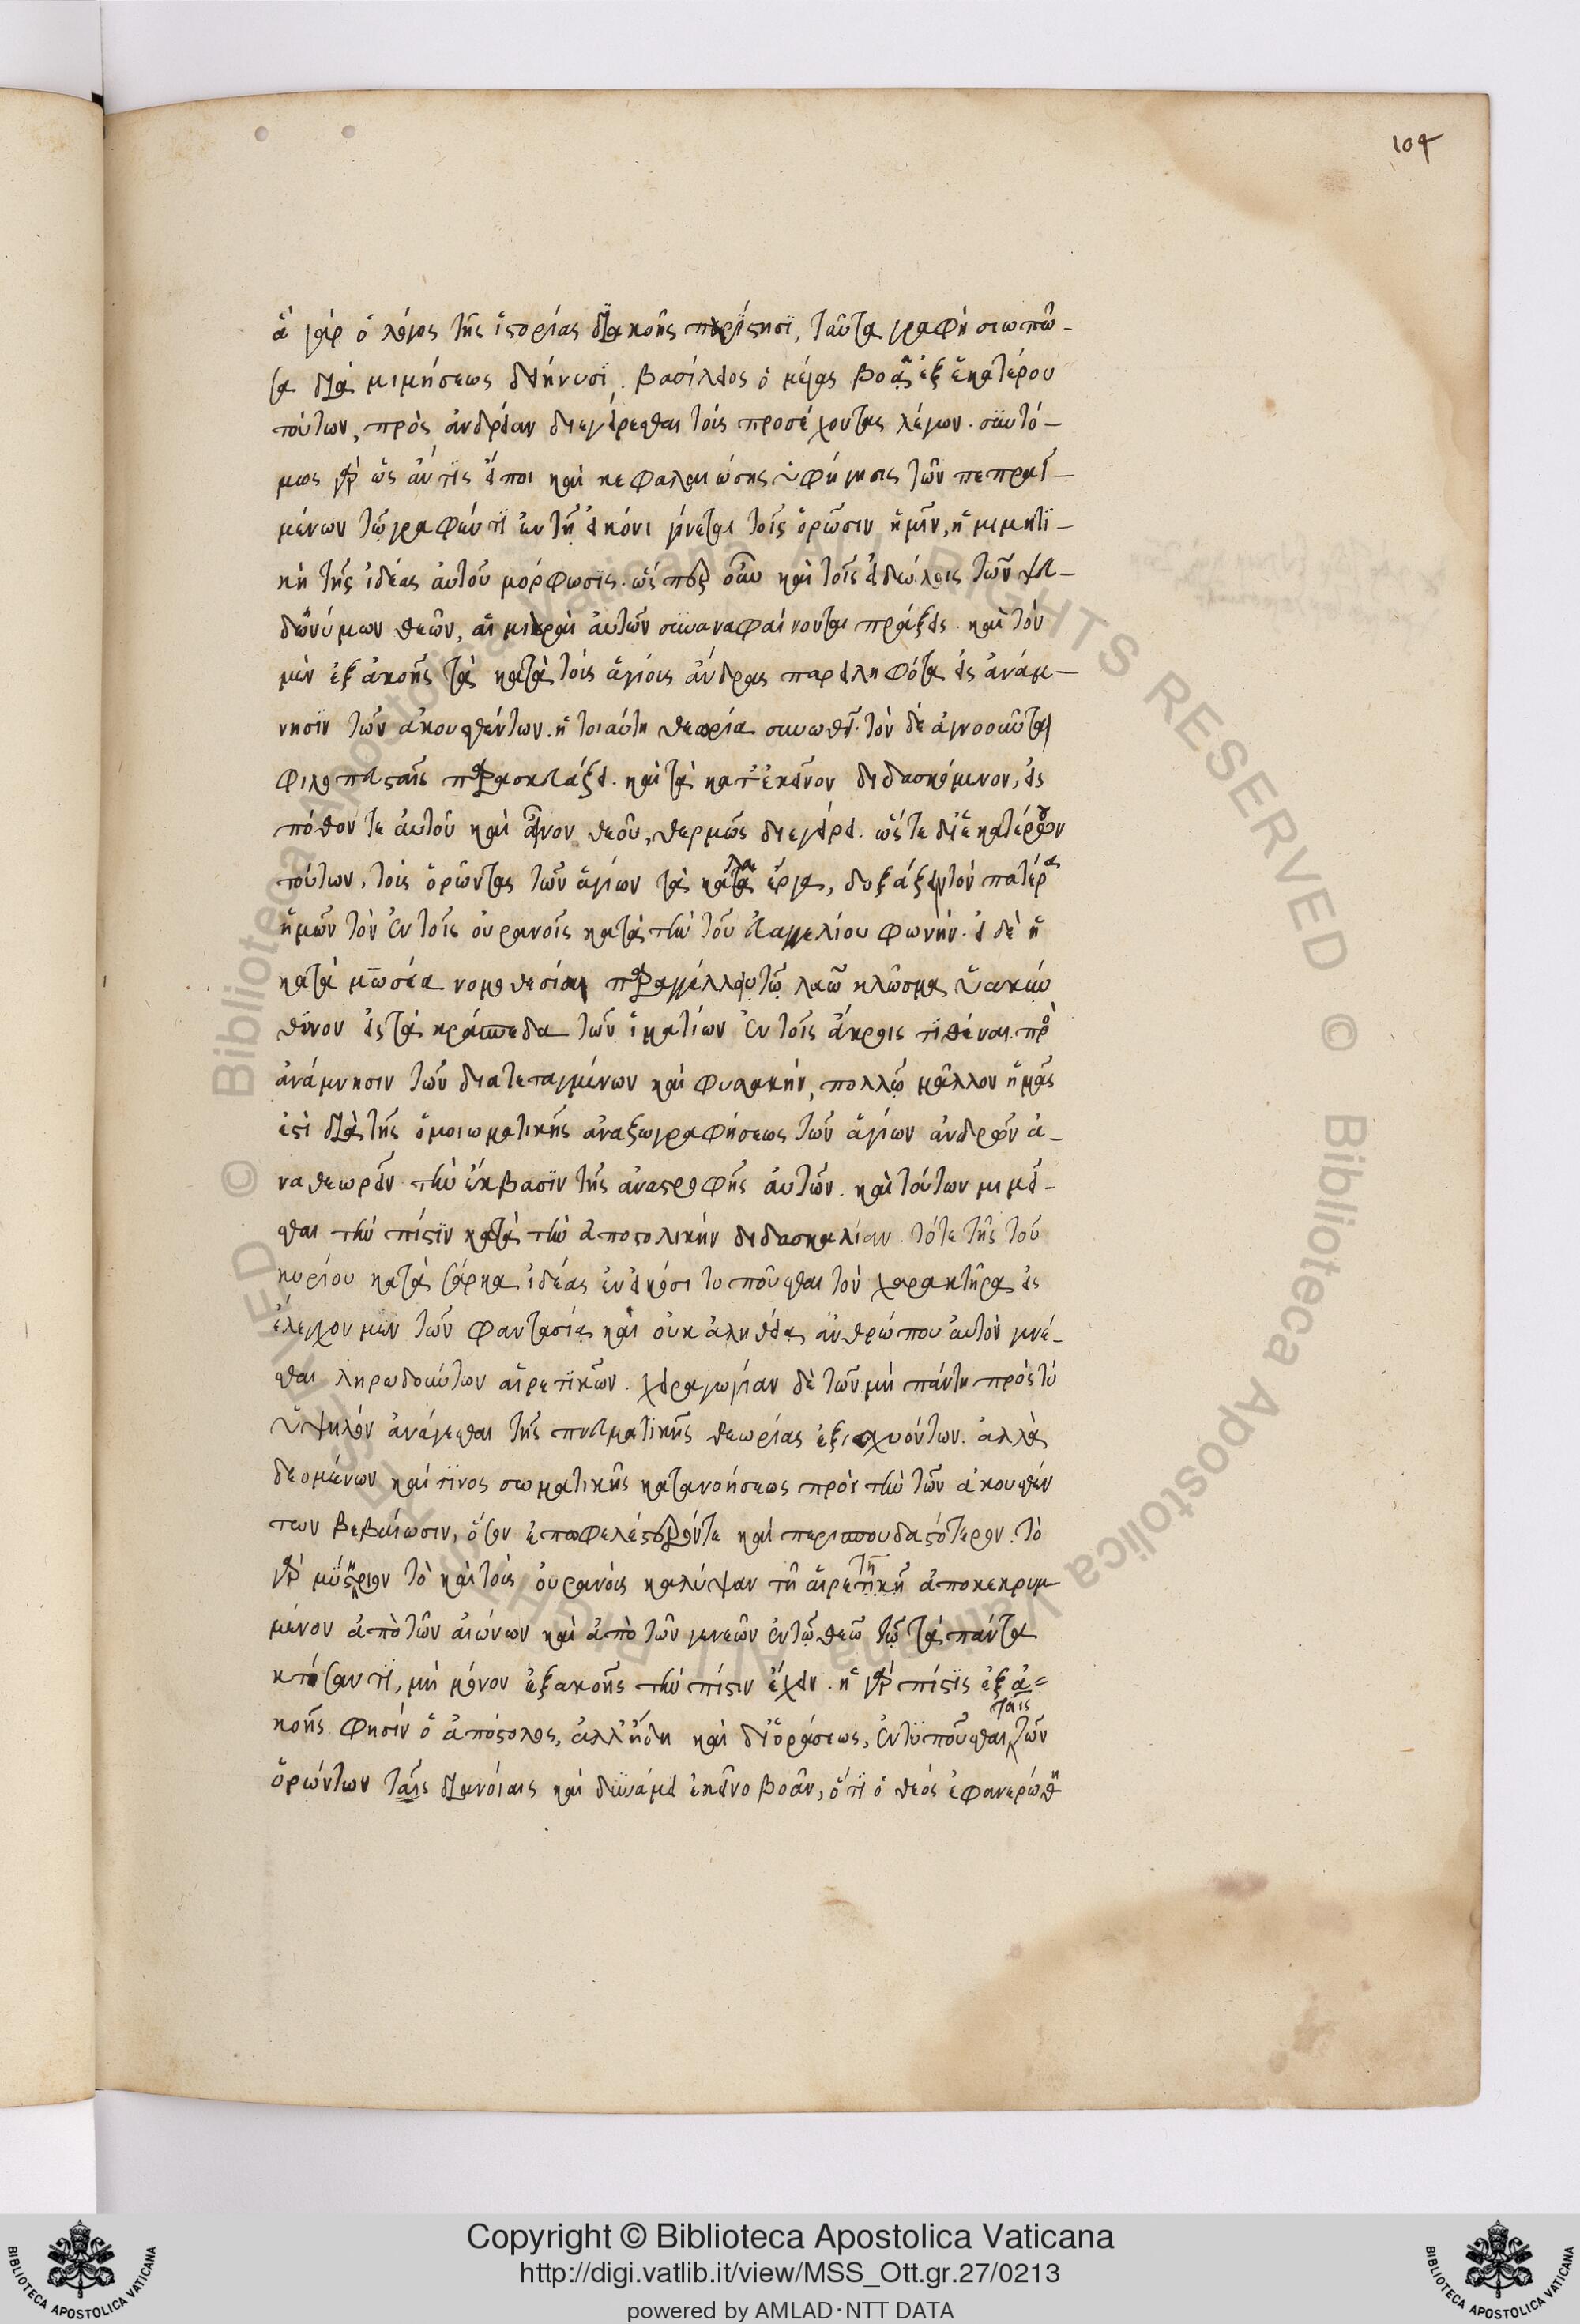 104
ἃ γὰρ ὁ λόγος τῆς ἱστορίας δι ἀκοῆς παρίστησι, ταῦτα γραφὴ σιωπῶ-
σα διὰ μιμήσεως δείκνυσι. βασίλειος ὁ μέγας βοᾷ ἐξ ἑκατέρου
τούτων, πρὸς ἀνδρείαν διεγείρεσθαι τοὺς προσέχοντας λέγων. συντό-
μως γὰρ ὡς ἄν τις εἴποι καὶ κεφαλαιώσης ὑφήγησις τῶν πεπραγ-
μένων τῷ γραφέντι ἐν τῇ εἰκόνι γίνεται τοῖς ὁρῶσιν ἡμῖν, ἡ μιμητι-
κὴ τῆς ἰδέας αὐτοῦ μόρφωσις. ὥσπερ οὖν καὶ τοῖς εἰδώλοις τῶν ψευ-
δωνύμων θεῶν, αἱ μιαραὶ αὐτῶν συναναφαίνονται πράξεις. καὶ τὸν
μὲν ἐξ ἀκοῆς τὰ κατὰ τοὺς ἁγίους ἄνδρας παρειληφότα εἰς ἀνάμ-
νησιν τῶν ἀκουσθέντων. ἡ τοιαύτη θεωρία συνωθεῖ. τὸν δὲ ἀγνοοῦντα
φιλοπευστεῖν παρασκευάζει. καὶ τὰ κατ' ἐκεῖνον διδασκόμενον, εἰς
πόθον τε αὐτοῦ καὶ αἶνον θεοῦ, θερμῶς διεγείρει. ὥστε δι' ἑκατέρων
τούτων, τοὺς ὁρῶντας τῶν ἁγίων τὰ καλὰ ἔργα, δοξάζειν τὸν πατέρα
ἡμῶν τὸν ἐν τοῖς οὐρανοῖς κατὰ τὴν τοῦ εὐαγγελίου φωνήν. εἰ δὲ ἡ
κατὰ μωσέα νομοθεσία παραγγέλλει τῷ λαῷ κλῶσμα ὑακίν
θινον εἰς τὰ κράσπεδα τῶν ἱματίων ἐν τοῖς ἄκροις τιθέναι πρὸς
ἀνάμνησιν τῶν διατεταγμένων καὶ φυλακήν, πολλῷ μᾶλλον ἡμᾶς
ἐστὶ διὰ τῆς ὁμοιωματικῆς ἀναζωγραφήσεως τῶν ἁγίων ἀνδρῶν ἀ-
ναθεωρεῖν τὴν ἔκβασιν τῆς ἀναστροφῆς αὐτῶν. καὶ τούτων μιμεῖ-
σθαι τὴν πίστιν κατὰ τὴν ἀποστολικὴν διδασκαλίαν. τό τε τῆς τοῦ
κυρίου κατὰ σάρκα ἰδέας ἐν εἰκόσι τυποῦσθαι τὸν χαρακτῆρα εἰς
ἔλεγχον μὲν τῶν φαντασίᾳ καὶ οὐκ ἀληθείᾳ ἄνθρωπον αὐτὸν γενέ-
σθαι ληρωδούντων αἱρετικῶν. χειραγωγίαν δὲ τῶν μὴ πάντη πρὸς τὸ
ὑψηλὸν ἀνάγεσθαι τῆς πνευματικῆς θεωρίας ἐξισχυόντων. ἀλλὰ
δεομένων καί τινος σωματικῆς κατανοήσεως πρὸς τὴν τῶν ἀκουσθέν
των βεβαίωσιν, ὅσον ἐπωφελέστερόν τε καὶ περισπουδαστότερον. τὸ
γὰρ μυστήριον τὸ καὶ τοὺς οὐρανοὺς καλύψαν τῇ ἀρετῇ κἂν ἀποκεκρυμ
μένον ἀπὸ τῶν αἰώνων καὶ ἀπὸ τῶν γενεῶν ἐν τῷ θεῷ τῷ τὰ πάντα
κτίσαντι, μὴ μόνον ἐξ ἀκοῆς τὴν πίστιν ἔχειν. ἡ γὰρ πίστις ἐξ ἀ-
κοῆς φησὶν ὁ ἀπόστολος, ἀλλ' ἤδη καὶ δι' ὁράσεως, ἐντυποῦσθαι ταῖς τῶν
ὁρώντων ταῖς διανοίαις καὶ δυνάμει ἐκεῖνο βοᾶν, ὅτι ὁ θεός ἐφανερώθη
Copyright © Biblioteca Apostolica Vaticana
http://digi.vatlib.it/view/MSS_Ott.gr.27/0213
powered by AMLAD·NTT DATA